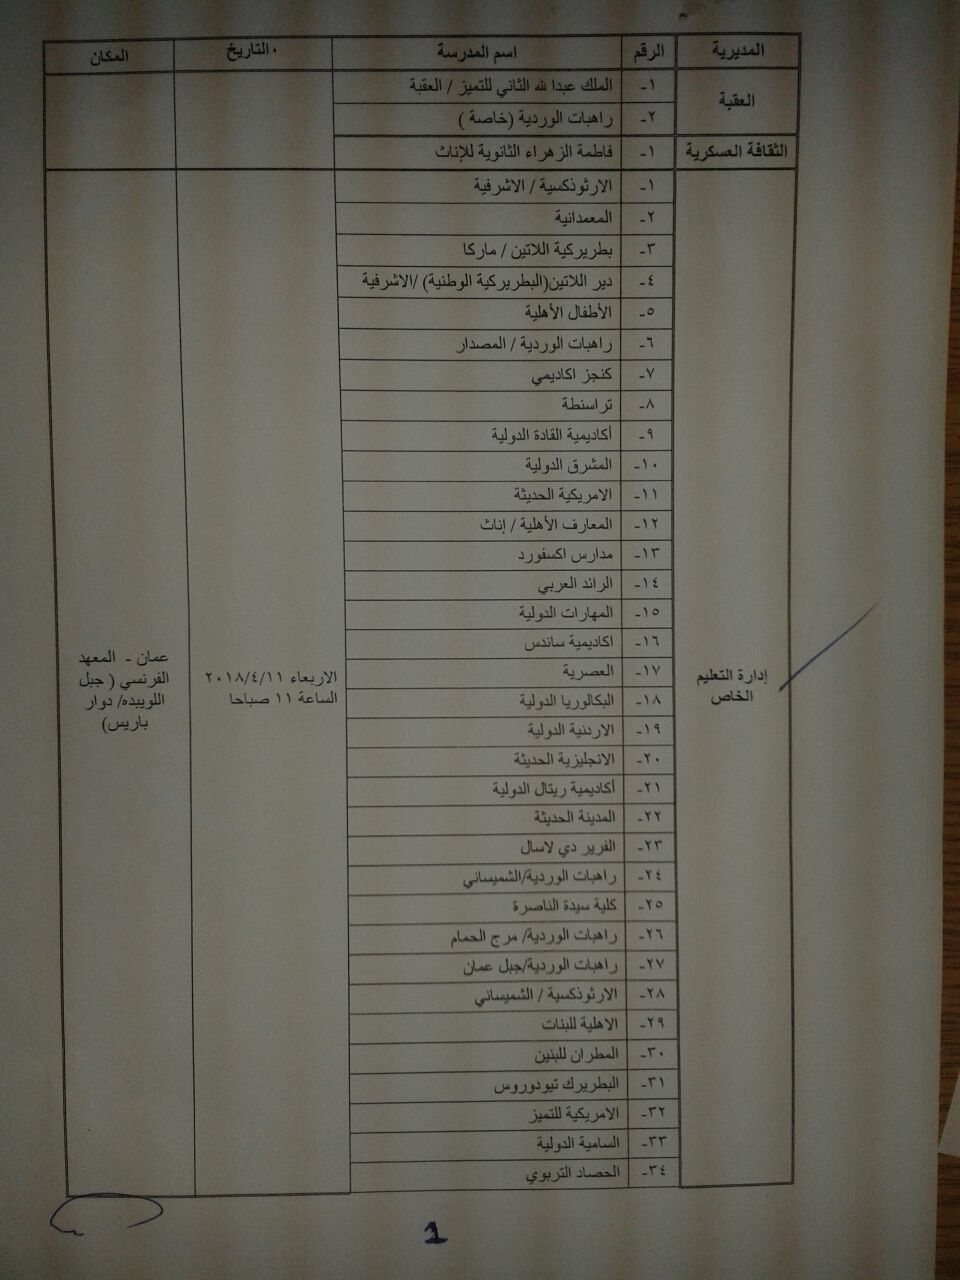 المديرية الرقم اسم المدرسة التاريخ المكان
العقبة
١- الملك عبدا لله الثاني للتميز / العقبة
٢- راهبات الوردية (خاصة )
الثقافة العسكرية ١- فاطمة الزهراء الثانوية للإناث
١- الارثوذكسية / الاشرفية
٢- المعمدانية
٣- بطريركية اللاتين / ماركا
٤- دير اللاتين(البطريركية الوطنية) /الاشرفية
٥- الأطفال الأهلية
٦- راهبات الوردية / المصدار
٧- كنجز اكاديمي
٨- تراسنطة
٩- أكاديمية القادة الدولية
١٠- المشرق الدولية
١١- الامريكية الحديثة
١٢- المعارف الأهلية / إناث
١٣- مدارس اكسفورد
١٤- الرائد العربي
١٥- المهارات الدولية
١٦- اكاديمية ساندس
١٧- العصرية
١٨- البكالوريا الدولية
١٩- الاردنية الدولية
٢٠- الانجليزية الحديثة
٢١- أكاديمية ريتال الدولية
٢٢- المدينة الحديثة
٢٣- الفرير دي لاسال
٢٤- راهبات الوردية/الشميساني
٢٥- كلية سيدة الناصرة
٢٦- راهبات الوردية/ مرج الحمام
٢٧- راهبات الوردية/جبل عمان
٢٨- الارثوذكسية / الشميساني
٢٩- الاهلية للبنات
٣٠- المطران للبنين
٣١- البطريرك تيودوروس
٣٢- الامريكية للتميز
٣٣- السامية الدولية
٣٤- الحصاد التربوي
إدارة التعليم
الخاص
الاربعاء ٢٠١٨/٤/١١
الساعة ١١ صباحا
عمان - المعهد
الفرنسي ( جبل
اللويبده/ دوار
باريس)
1